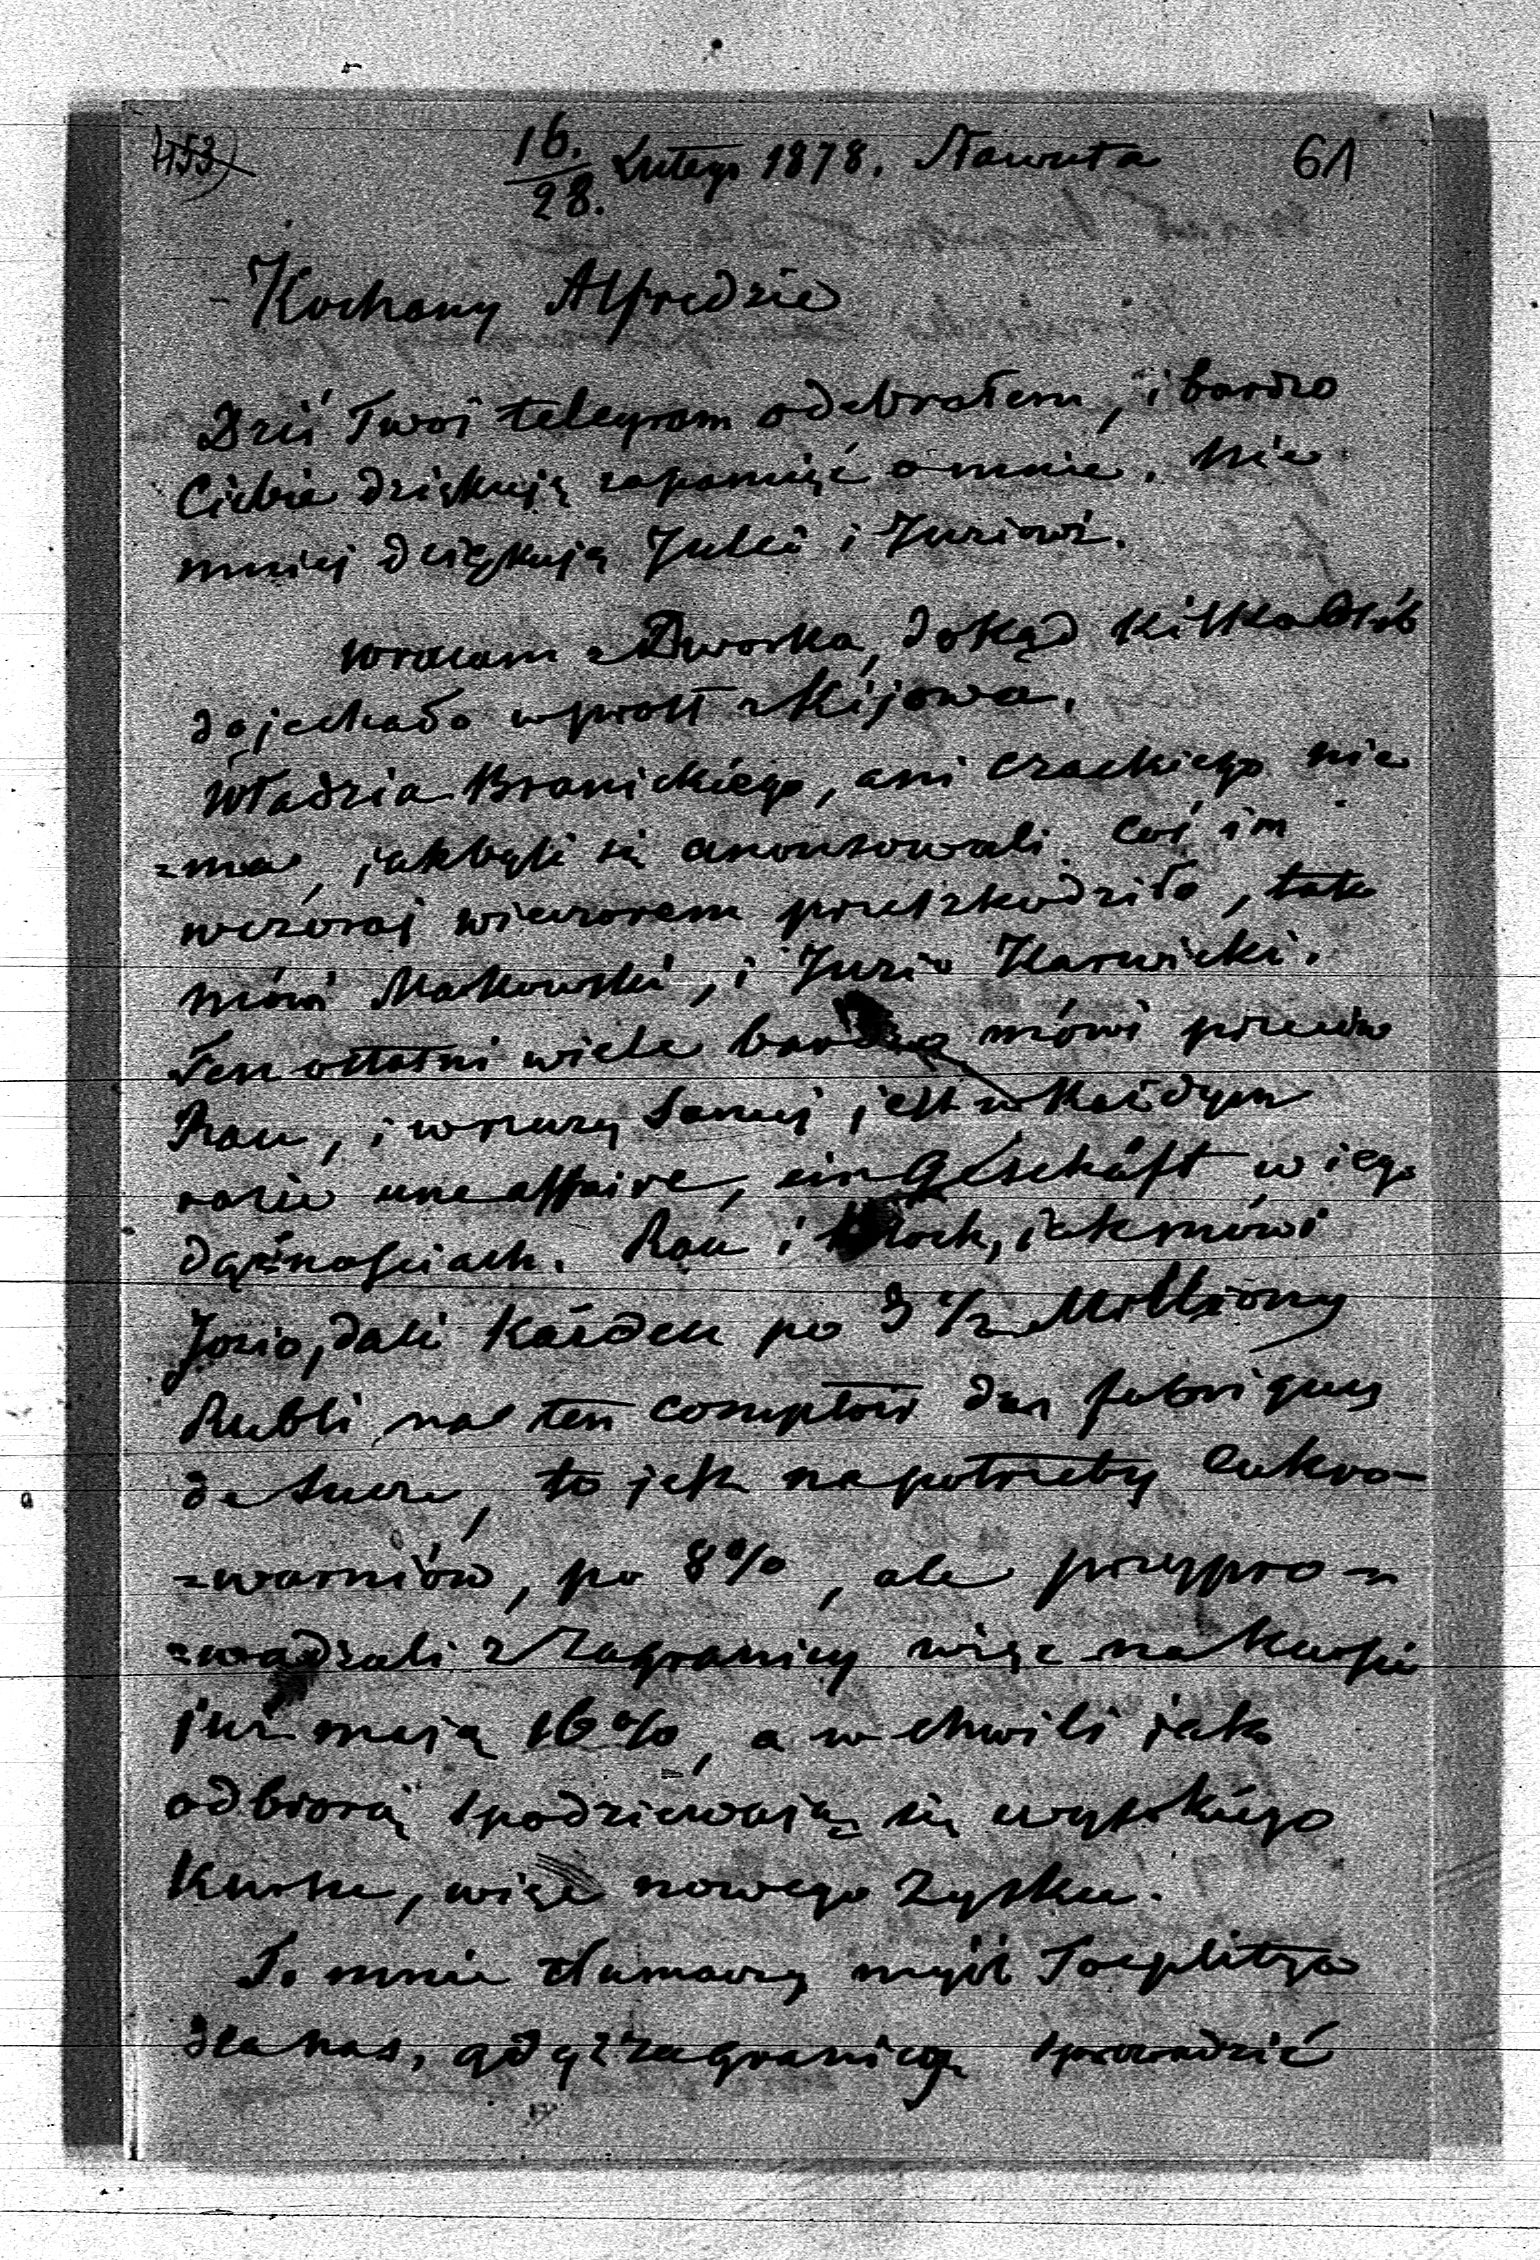 453)
16./28. Lutego 1878. Nawuta
61
Kochany Alfredzie
Dziś Twoi telegram odebrałem, i bardzo
Ciebie dziękuję zapamięć o mnie. Nie
mniej dziękuję Julci i Juziowi.
wracam z Dworka, dokąd kilka osób
dojechało wprost z Kijowa.
Władzia Branickiego, ani Czackiego nie
=ma, jakbyli się anonsowali. Coś im
wczoraj wieczorem przeszkodziło, tak
mówi Makowski, i Juzio Karwicki.
Ten ostatni wiele bardzo mówi przeciw
Rau, i w rzeczy samej jest w każdym
razie une affaire, ein Geschäft w iego
dążnościach. Rau i Bloch, jak mówi
Jozio, dali każden po 3 1/2 Milliony
Rubli na ten comptoir des fabriques
de sucre, to jest na potrzeby cukro-
=warniów, po 8%, ale przypro=
=wadzali z zagranicy więc na kursie
już mają 16%, a w chwili jak
odbiorą spodziewają się wysokiego
Kursu, więc nowego zysku.
To mnie tłumaczy myśl Toeplitza
dla nas, gdyż zagranicą sprowadzić